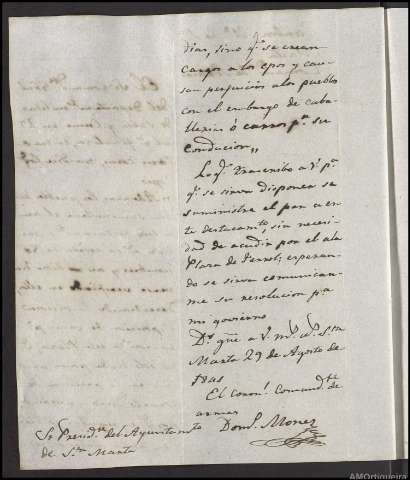 dias, sino q.e se crean
cargos a los epos y cau-
san perjuicios a los pueblos
con el embargo de caba-
llerias ó carros p.a su
conducion,,
Lo q.e transcribo a V. p.a
q.e se sirva disponer se
suministre el pan a es-
te destacam.to, sin necesi-
dad de acudir por el a la
Plaza de Ferrol; esperan-
do se sirva comunicar-
me su resolucion p.a
mi govierno
D.s gue a V. m.s a.s S.ta
Marta 29 de Agosto de
El Coron.l Comand.te de
armas
Dom.o Monez
Sr. Presid.te del Ayuntam.to
de S.ta Marta
AMOrtigueira